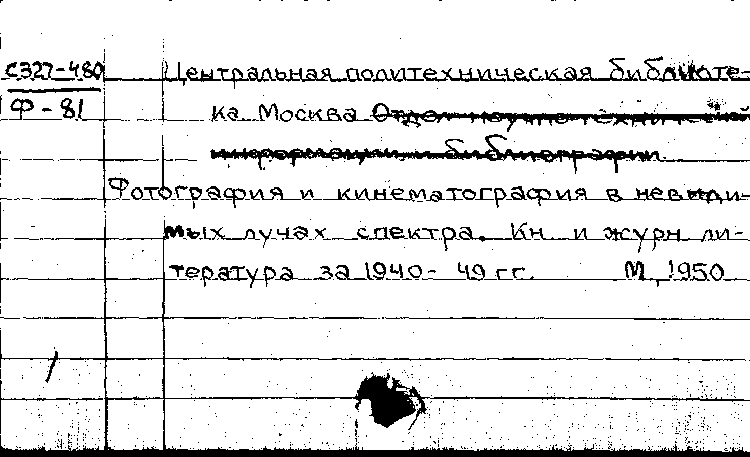 С327-480
Ф-81
Центральная политехническая библиоте-
ка Москва Отдел научно-технической
информации и библиографии
Фотография и кинематография в невиди-
мых лучах спектра. Кн и журн ли-
тература за 1940-49 гг. М, 1950